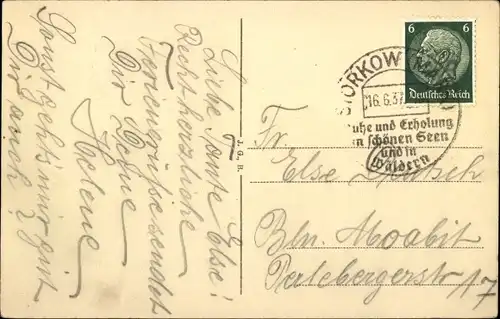 Liebe Tante Else!
Recht herzliche
Feriengrüße sendet
Dir Deine
Helene
Sonst gehts mir gut
Dir auch?
J. G. B.
6 6
Deutsches Reich
STORKOW
16.6.37
Ruhe und Erholung
an schönen Seen
und in
Wäldern
Fr.
Else
Bln. Moabit
Perlebergerstr 17